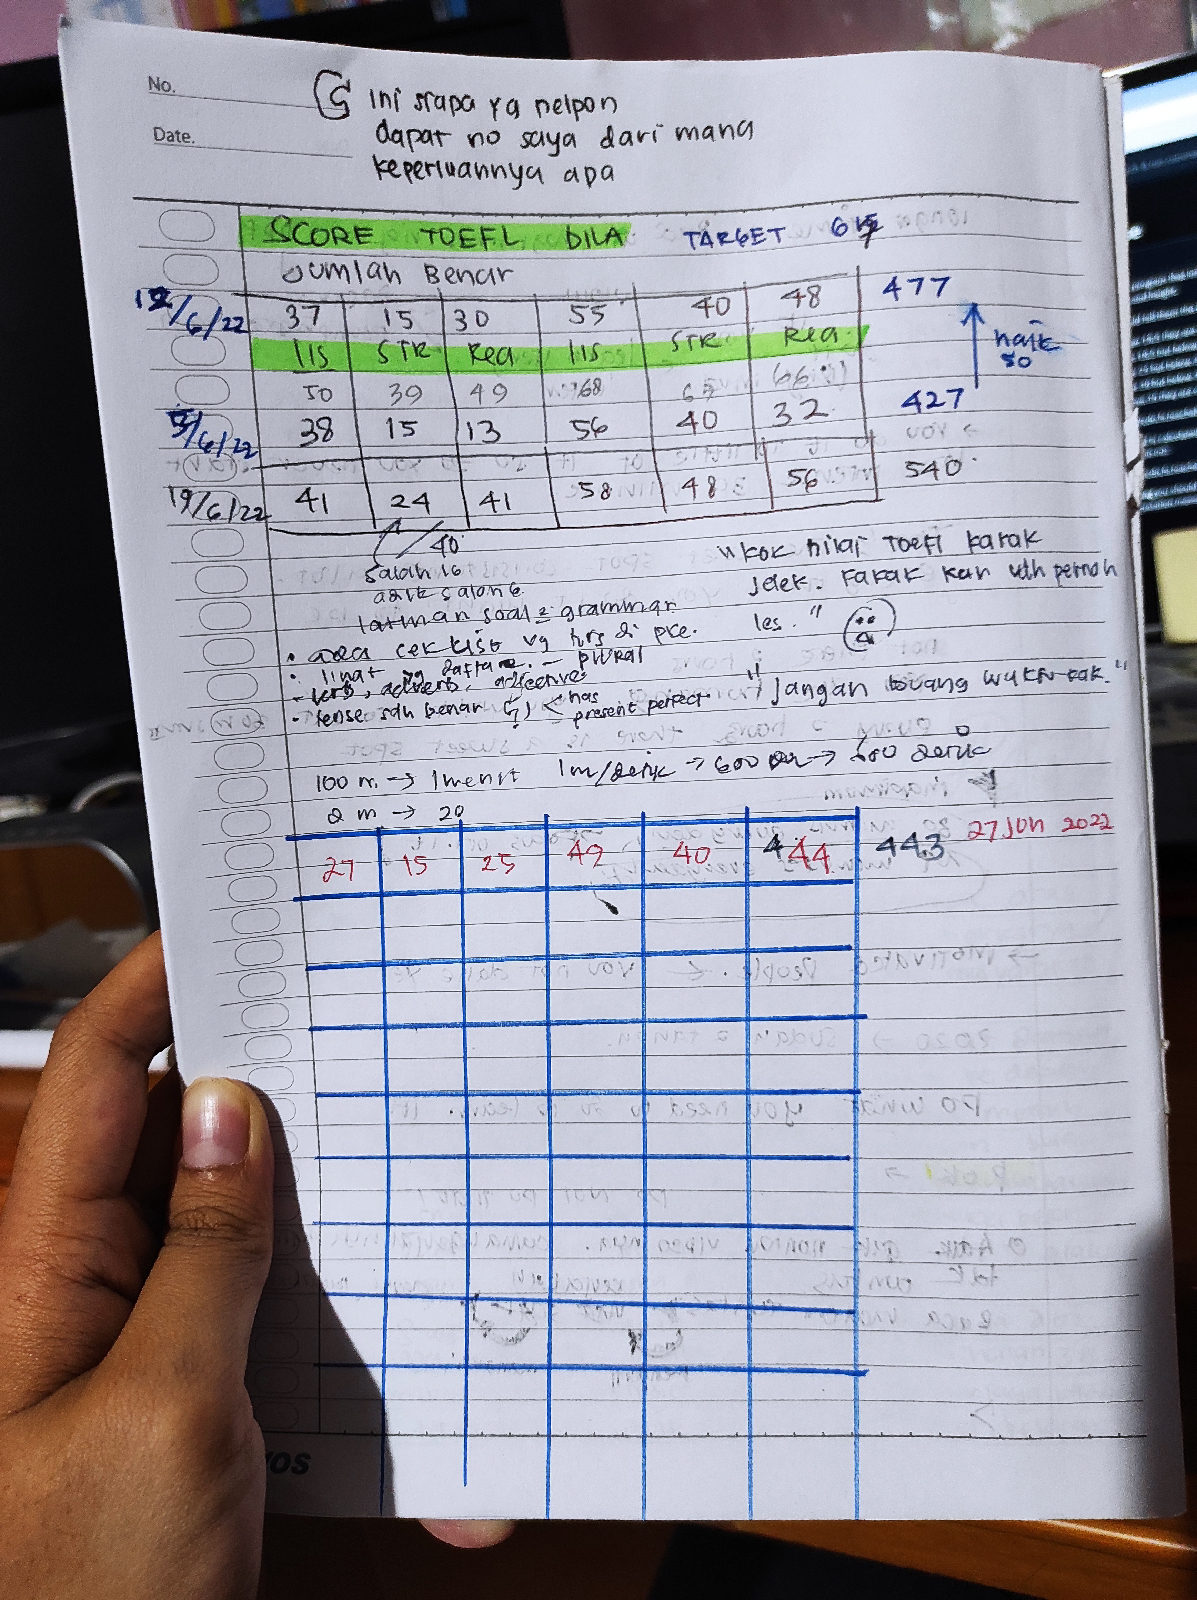 No.
Date.
Ini siapa ya nelpon
dapat no saya dari mana
keperluannya apa
SCORE TOEFL DILA TARGET
Jumlah Benar
12/6/22 37 15 30 55 40 48 477
LIS STR Rea LIS STR Rea
naik 50
50 39 49 68 67 66
5/6/22 38 15 13 56 40 32 427
19/6/22 41 24 41 58 48 56 540
40
salah 16
adik salah 6
latihan soal2 grammar
"kok nilai Toefl kakak
jelek. Kakak kan udh pernah
les."
• ada ceklist yg hrs di
• lihat yg — plural
- verb, adverb, adjective
- tense sdh benar (?) < has
present perfect
"Jangan buang waktu kak."
100 m → 1 menit 1m/detik → 600 → 600 detik
2 m → 20
27 15 25 49 40 44 443 27 Jun 2022